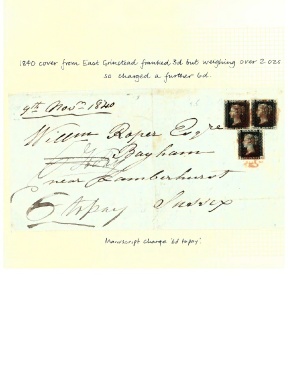 1840 cover from East Grinstead franked 3d but weighing over 2 ozs
so charged a further 6d.
9th Novr. 1840
Willm Roper Esqre
Bayham
near Lamberhurst
6 to pay Sussex
Manuscript charge '6d to pay'.